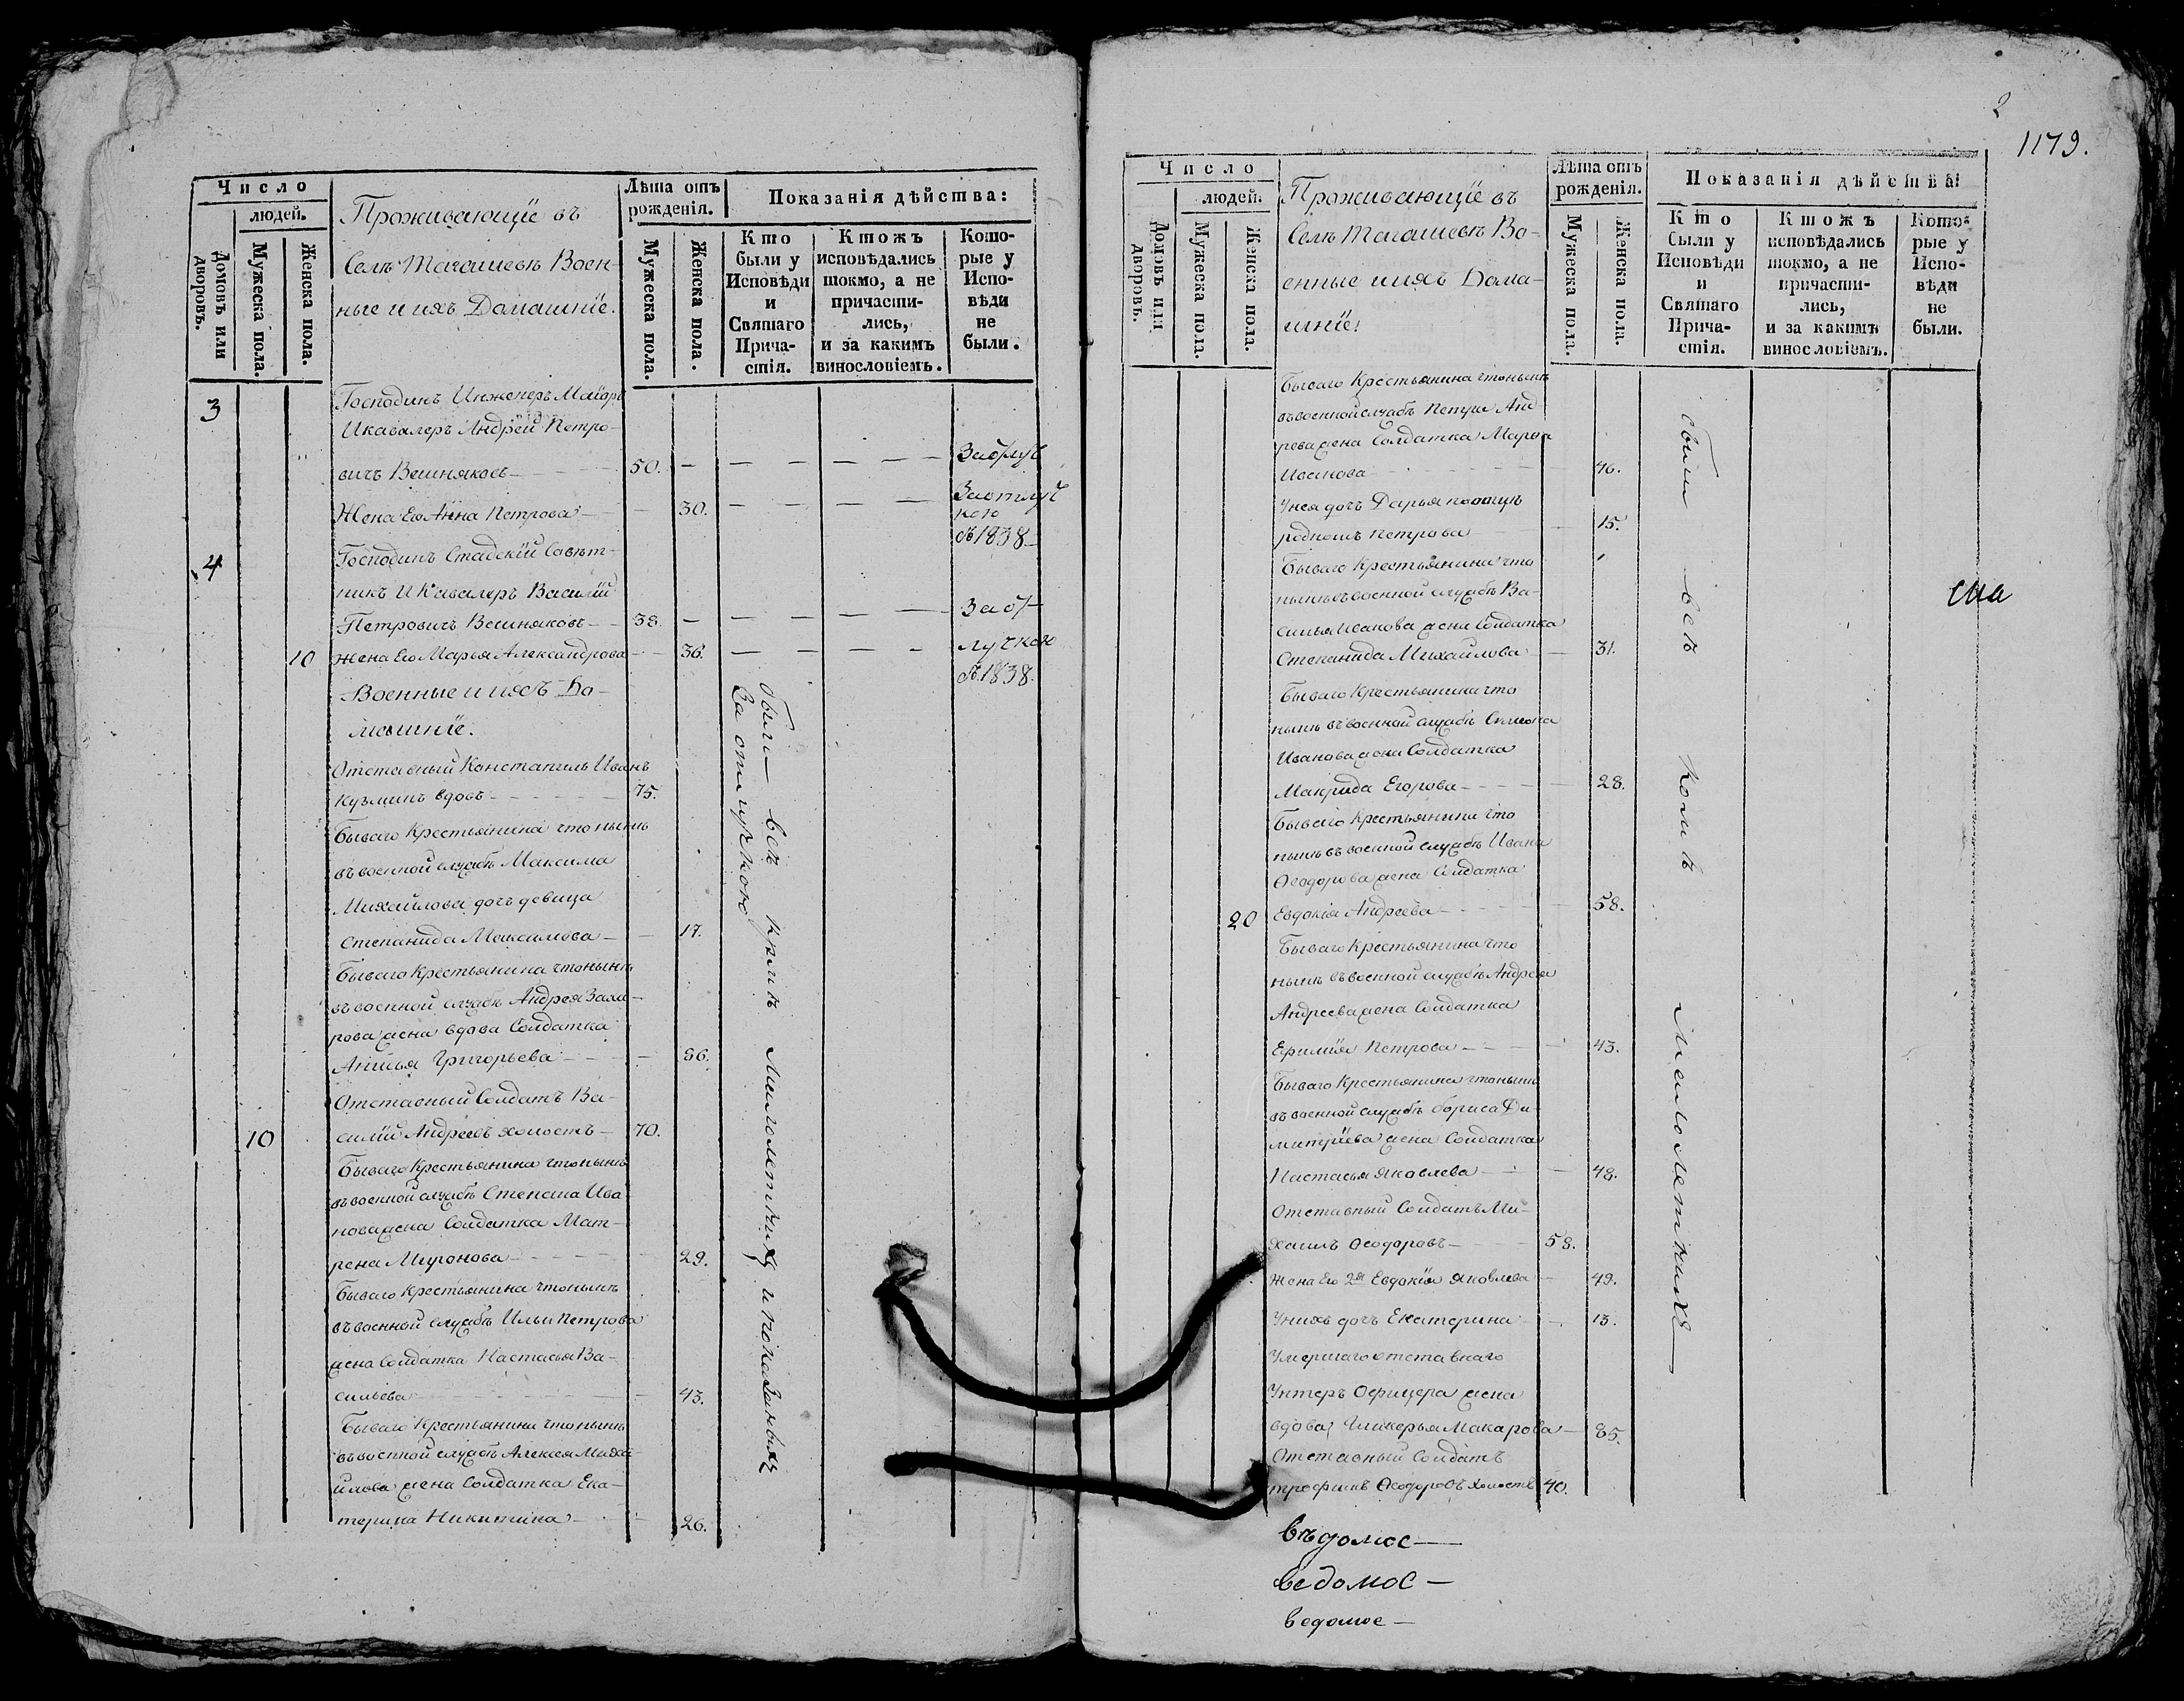 Число
людей.
Домовъ или дворовъ.
Мужеска пола.
Женска пола.
Проживающіе въ
Селѣ Тагашевѣ Воен-
ные и ихъ Домашніе.
Лѣта отъ рожденія.
Мужеска пола.
Женска пола.
Показанія дѣйства:
Кто были у Исповѣди и Святаго Прича-стія.
Ктожъ исповѣдались токмо, а не причасти-лись, и за какимъ винословіемъ.
Кото-рые у Испо-вѣди не были.
3 Господинъ Инженеръ Маіоръ
И кавалеръ Андрей Петро-
вичъ Вешняковъ 50. За отлуч
Жена Его Анна Петрова 30. За отлуч
кою
съ 1838
4 Господинъ Стадскій Совѣт-
никъ И Кавалеръ Василій
Петровичъ Вешняковъ 38. За от
10 жена Его Марья Александрова 36. лучкою
съ 1838.
Военные и ихъ До-
машніе.
Отставный Констапель Иванъ
Кузминъ вдовъ 75.
Бываго Крестьянина что нынѣ
въ военной службѣ Максима
Михайлова дочь девица
Степанида Максимова 17.
Бываго Крестьянина что нынѣ
въ военной службѣ Андрея Заха-
рова жена вдова Солдатка
Анисья Григорьева 86.
Отставный Солдатъ Ва-
10 силій Андреевъ холостъ 70.
Бываго Крестьянина что нынѣ
въ военной службѣ Степана Ива-
нова жена Солдатка Мат-
рена Миронова 29.
Бываго Крестьянина что нынѣ
въ военной службѣ Ильи Петрова
жена Солдатка Настасья Ва-
сильева 43.
Бываго Крестьянина что нынѣ
въ военной службѣ Алексея Миха-
йлова жена Солдатка Ека-
терина Никитина 26.
были все кромѣ Малолетнихъ и показанныхъ
За отлучкою
2
1179.
Число
людей.
Домовъ или дворовъ.
Мужеска пола.
Женска пола.
Проживающіе въ
Селѣ Тагашевѣ Во-
енные и ихъ Дома-
шніе.
Лѣта отъ рожденія.
Мужеска пола.
Женска пола.
Показанія дѣйства
Кто были у Исповѣди и Святаго Прича-стія.
Ктожъ исповѣдались токмо, а не причасти-лись, и за какимъ винословіемъ.
Кото-рые у Испо-вѣди не были.
Бываго Крестьянина что нынѣ
въ военной службѣ Петра Анд
реева жена Солдатка Марья
Иванова 46.
У нея дочь Дарья по отцѣ
родномъ Петрова 15.
Бываго Крестьянина что
нынѣ въ военной службѣ Ва-
силья Иванова жена Солдатка
Степанида Михайлова 31.
Бываго Крестьянина что
нынѣ въ военной службѣ Симіона
Иванова жена Солдатка
Макрида Егорова 28.
Бываго Крестьянина что
нынѣ въ военной службѣ Ивана
Ѳеодорова жена Солдатка
20 Евдокія Андреева 58.
Бываго Крестьянина что
нынѣ въ военной службѣ Андрея
Андреева жена Солдатка
Ефимія Петрова 43.
Бываго Крестьянина что нынѣ
въ военной службѣ бориса Ди-
митріева жена Солдатка
Настасья Яковлева 48.
Отставный Солдатъ Ми-
хаилъ Ѳеодоровъ 58.
Жена Его 2я Евдокія Яковлева 49.
У нихъ дочь Екатерина 13.
Умершаго отставнаго
Унтеръ Офицера жена
вдова Гликерья Макарова 85.
Отставный Солдатъ
трофимъ Ѳеодоровъ холостъ 40.
были все кромѣ Малолетнихъ
вѣдомос
ведомос
ведомос